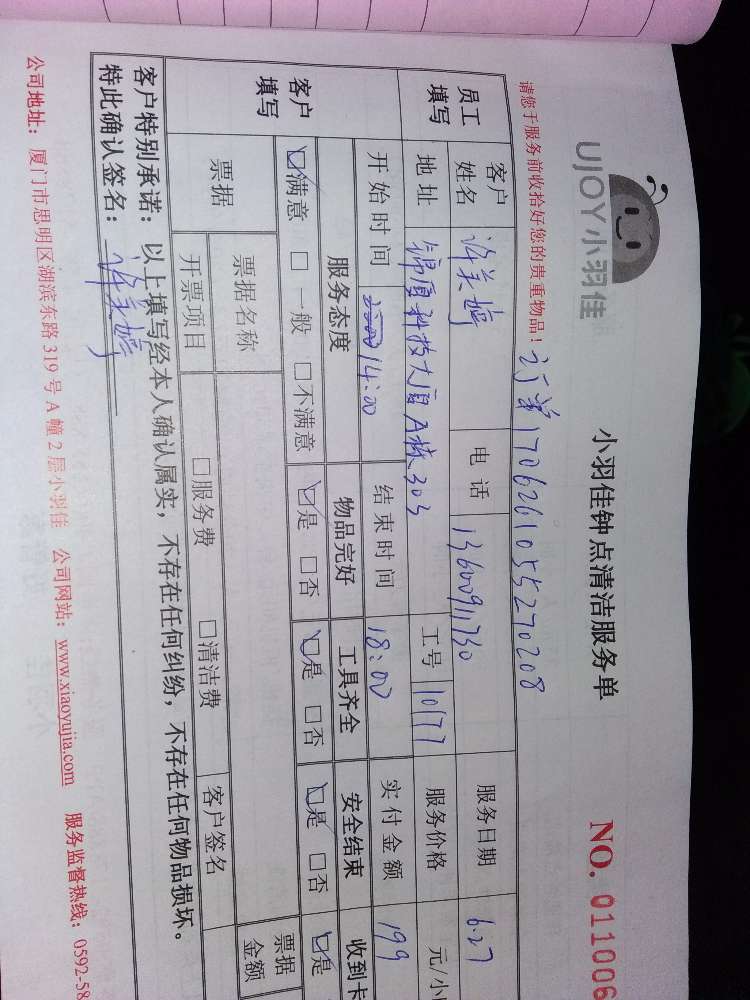 UJOY小羽佳
小羽佳钟点清洁服务单
NO. 011006
请您于服务前收拾好您的贵重物品!
订单1706261055270208
员工填写 客户姓名 许美婷 电话 13600911730 服务日期 6.27
地址 锦原科技大厦A栋303 工号 10177 服务价格 元/小
客户填写 开始时间 14:00 结束时间 18:00 实付金额 199
服务态度 物品完好 工具齐全 安全结束 收到卡
☑满意 □一般 □不满意 ☑是 □否 ☑是 □否 ☑是 □否 ☑是
票据 票据名称 票据金额
开票项目 □服务费 □清洁费 客户签名
客户特别承诺:以上填写经本人确认属实,不存在任何纠纷,不存在任何物品损坏。
特此确认签名:许美婷
公司地址:厦门市思明区湖滨东路319号A幢2层小羽佳 公司网站:www.xiaoyujia.com 服务监督热线:0592-58